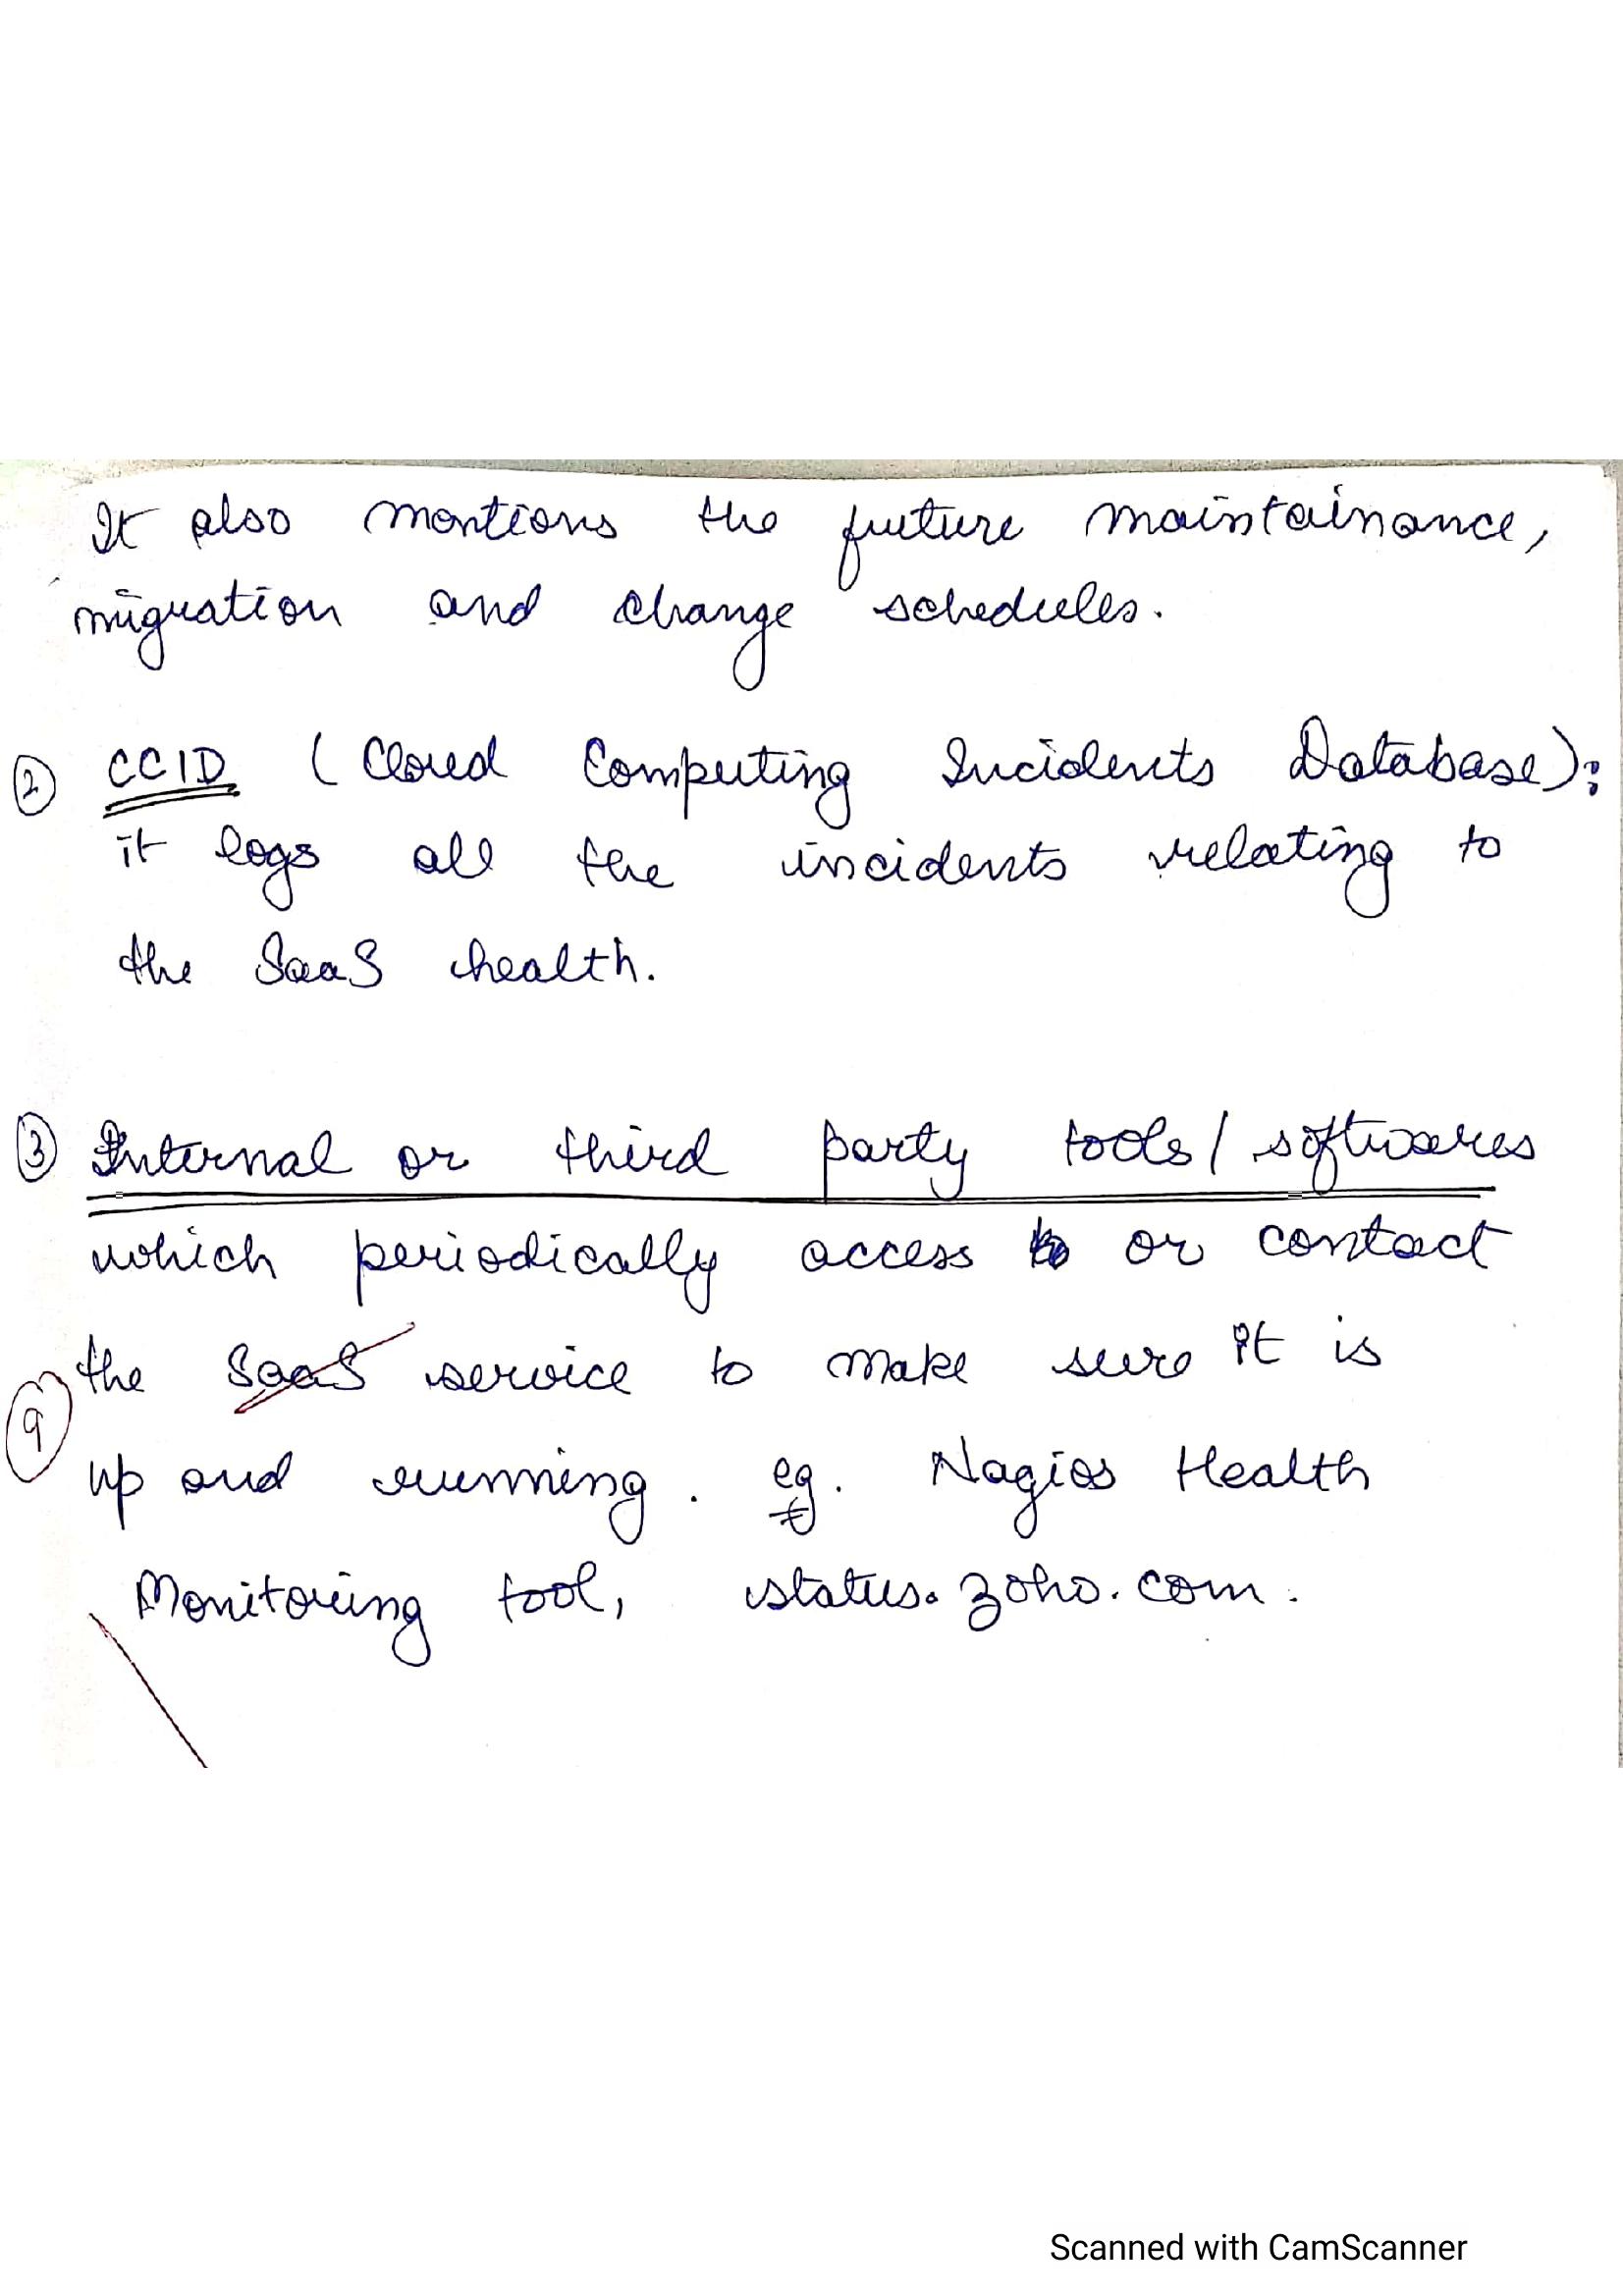 It also mentions the future maintainance,
migration and change schedules.
② CCID (Cloud Computing Incidents Database):
it logs all the incidents relating to
the SaaS health.
③ Internal or third party tools/softwares
which periodically access or contact
the SaaS service to make sure it is
9
up and running. eg. Nagios Health
Monitoring tool, status.zoho.com.
Scanned with CamScanner